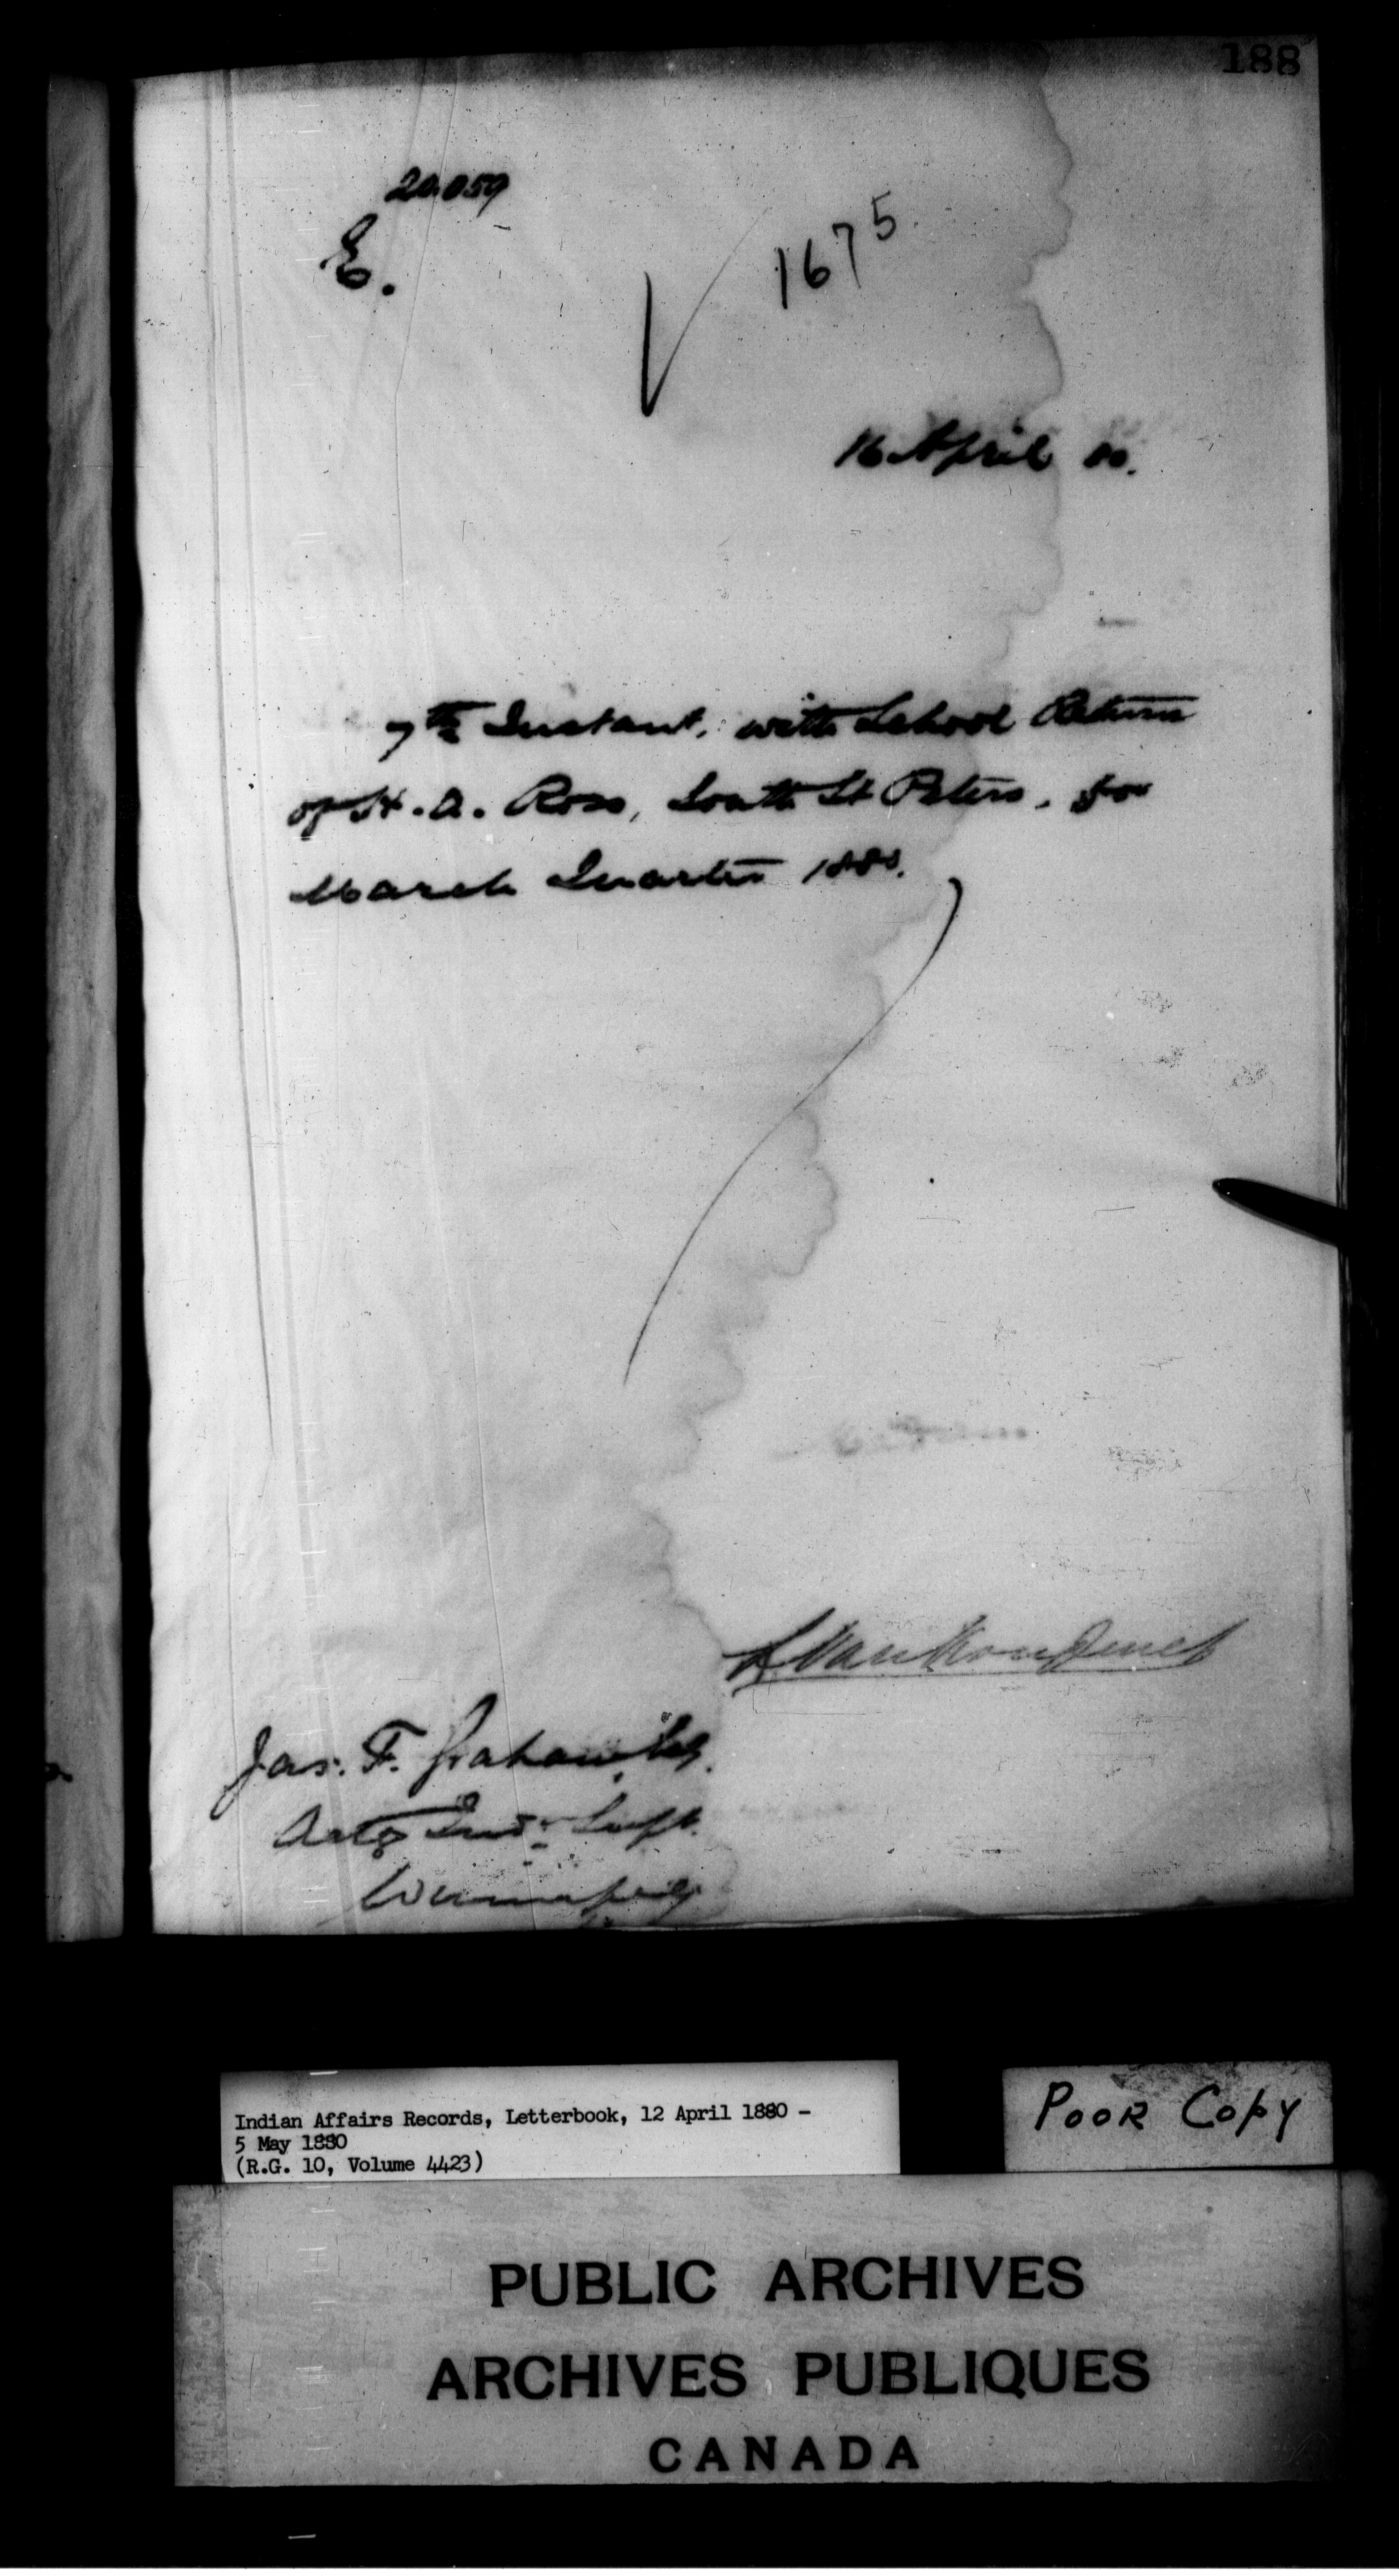 188
20,059
E.
1675
16 April 80.
7th Instant, with School Return
of H. A. Ross, South St Peters, for
March Quarter 1880.
L VanKoughnet
Jas. F. Graham, Esq.
Actg Ind. Supt.
Winnipeg
Indian Affairs Records, Letterbook, 12 April 1880 -
5 May 1880
(R.G. 10, Volume 4423)
POOR COPY
PUBLIC ARCHIVES
ARCHIVES PUBLIQUES
CANADA